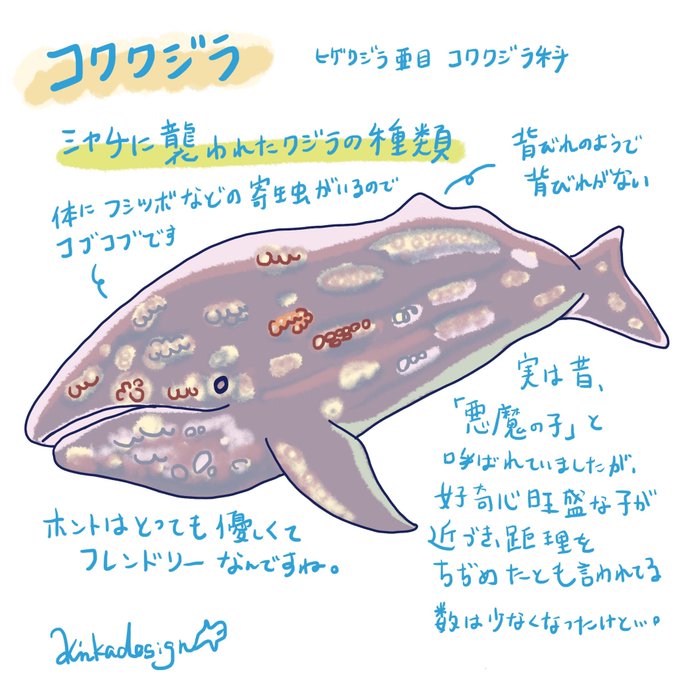 コククジラ
ヒゲクジラ亜目 コククジラ科
シャチに襲われたクジラの種類
背びれのようで
背びれがない
体に フジツボなどの寄生虫がいるので
コブコブです
実は昔、
「悪魔の子」と
呼ばれていましたが、
好奇心旺盛な子が
近づき、距離を
ちぢめたとも言われてる
数は少なくなったけど…。
ホントはとっても優しくて
フレンドリーなんですね。
Kinkadesign